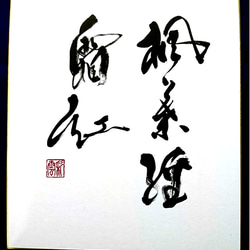 楓葉經
霜紅